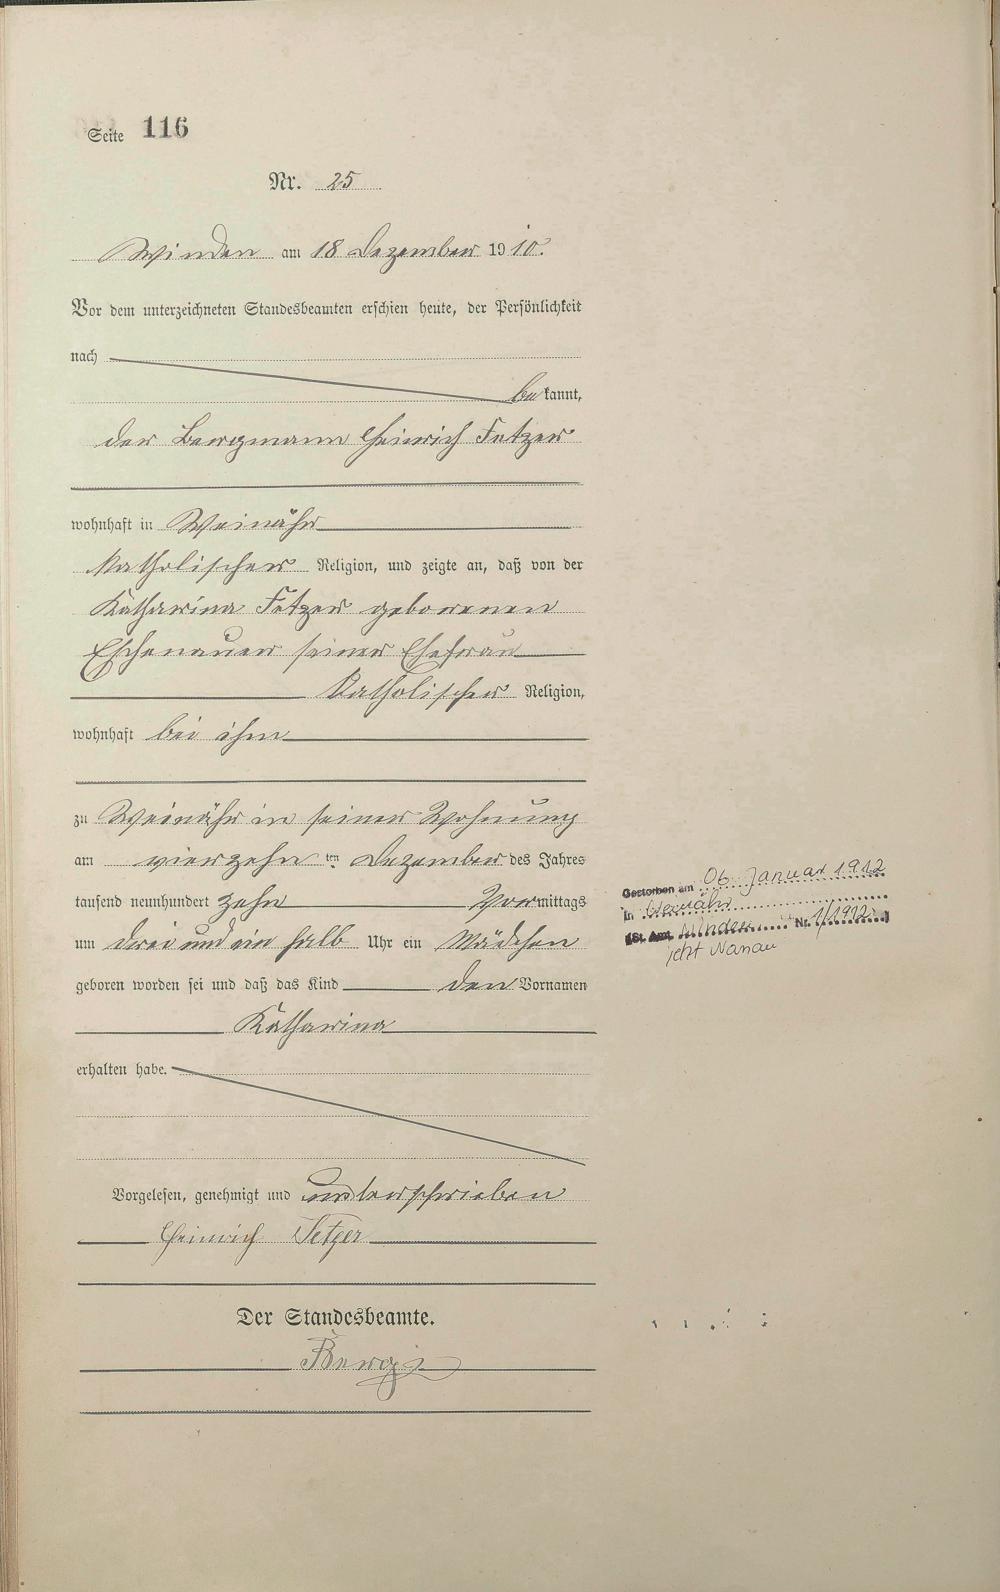 Seite 116
Nr. 25
Winden am 18 Dezember 1910.
Vor dem unterzeichneten Standesbeamten erschien heute, der Persönlichkeit
nach
bekannt,
der Bergmann Heinrich Fetzer
wohnhaft in Weinähr
katholischer Religion, und zeigte an, daß von der
Katharina Fetzer geborenen
Eschenauer seiner Ehefrau
Katholischer Religion,
wohnhaft bei ihm
zu Weinähr in seiner Wohnung
am vierzehn ten Dezember des Jahres
tausend neunhundert zehn Vormittags
um drei und ein halb Uhr ein Mädchen
geboren worden sei und daß das Kind den Vornamen
Katharina
erhalten habe.
Vorgelesen, genehmigt und unterschrieben
Heinrich Fetzer
Der Standesbeamte.
Gestorben am 06. Januar 1912
in Weinähr
(St. Amt Winden Nr. 1/1912)
jetzt Nassau